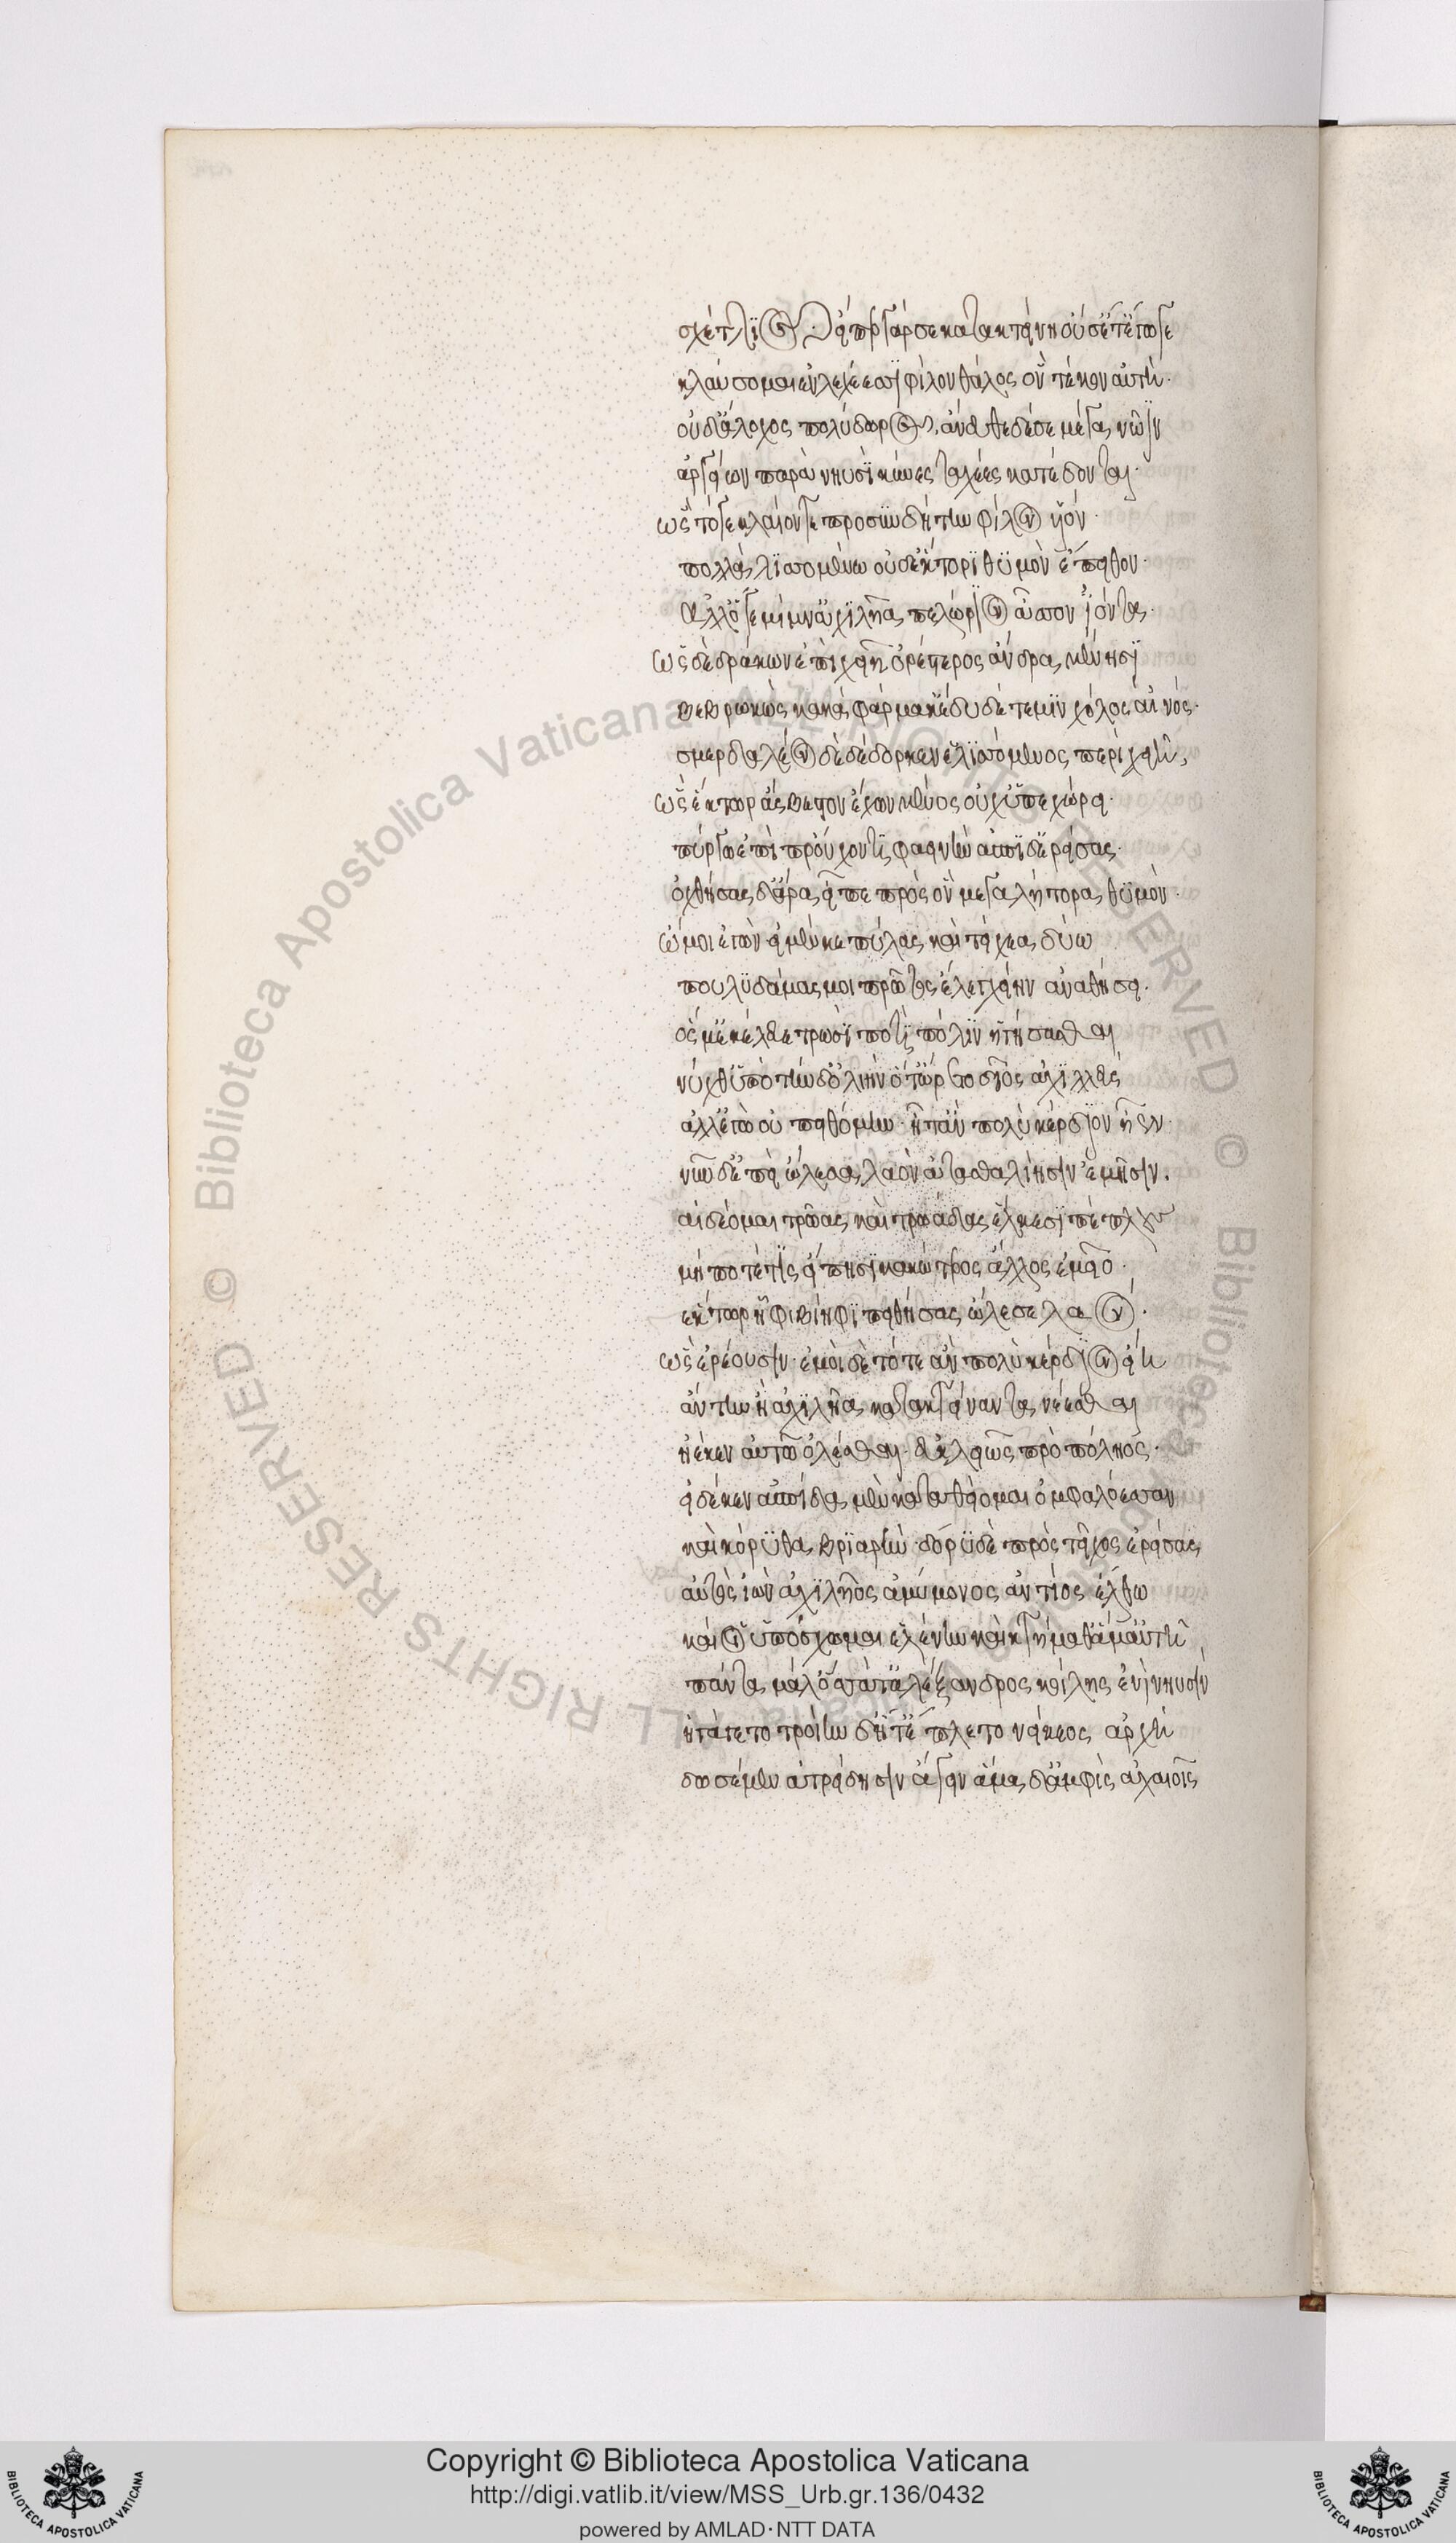 σχέτλιος· εἴπερ γάρ σε κατακτείνη οὔ σ' ἔτ' ἔγωγε
κλαύσομαι ἐν λεχέεσσι φίλον θάλος ὃν τέκον αὐτή·
οὐδ' ἄλοχος πολύδωρος, ἄνευθε δέ σε μέγα νῶϊν
ἀργείων παρὰ νηυσὶ κύνες ταχέες κατέδονται·
ὣς τώγε κλαίοντε προσαυδήτην φίλον υἱόν·
πολλὰ λισσομένω οὐδ' ἕκτορι θυμὸν ἔπειθον·
ἀλλ' ὅγε μίμν' ἀχιλῆα πελώριον ἆσσον ἰόντα·
ὡς δὲ δράκων ἐπὶ χειῆ ὀρέστερος ἄνδρα μένησι
βεβρωκὼς κακὰ φάρμακ' ἔδυ δέ τέ μιν χόλος αἰνός·
σμερδαλέον δὲ δέδορκεν ἑλισσόμενος περὶ χειῆ,
ὣς ἕκτωρ ἄσβεστον ἔχων μένος οὐχ ὑπεχώρει·
πύργω ἐπὶ προὔχοντι φαεινὴν ἀσπίδ' ἐρείσας·
ὀχθήσας δ' ἄρα εἶπε πρὸς ὃν μεγαλήτορα θυμόν·
ὤ μοι ἐγὼν εἰ μέν κε πύλας καὶ τείχεα δύω
πουλυδάμας μοι πρῶτος ἐλεγχείην ἀναθήσει·
ὅς μ' ἐκέλευε τρωσὶ ποτὶ πόλιν ἡγήσασθαι
νύχθ' ὕπο τήνδ' ὀλοὴν ὅτ' ὤρετο δῖος ἀχιλλεύς
ἀλλ' ἐγὼ οὐ πιθόμην· ἦ τ' ἂν πολὺ κέρδιον ἦεν·
νῦν δ' ἐπεὶ ὤλεσα λαὸν ἀτασθαλίησιν ἐμῆσιν.
αἰδέομαι τρῶας καὶ τρωάδας ἑλκεσιπέπλους
μή ποτέ τις εἴπησι κακώτερος ἄλλος ἐμεῖο·
ἕκτωρ ἧφι βίηφι πιθήσας ὤλεσε λαόν·
ὣς ἐρέουσιν· ἐμοὶ δὲ τότ' ἂν πολὺ κέρδιον εἴη
ἄντην ἢ ἀχιλῆα κατακτείναντα νέεσθαι
ἠέ κεν αὐτῶ ὀλέσθαι εὐκλειῶς πρὸ πόληος·
εἰ δέ κεν ἀσπίδα μὲν καταθείομαι ὀμφαλόεσσαν
καὶ κόρυθα βριαρὴν· δόρυ δὲ πρὸς τεῖχος ἐρείσας
αὐτὸς ἰὼν ἀχιλῆος ἀμύμονος ἀντίος ἔλθω
καί οἱ ὑπόσχωμαι ἑλένην καὶ κτήμαθ' ἅμ' αὐτῆ
πάντα μάλ' ὅσσά τ' ἀλέξανδρος κοίλης ἐνὶ νηυσὶν
ἠγάγετο τροίην δ' ἥ τ' ἔπλετο νείκεος ἀρχή
δωσέμεν ἀτρείδησιν ἄγειν ἅμα δ' ἀμφὶς ἀχαιοῖς
Copyright © Biblioteca Apostolica Vaticana
http://digi.vatlib.it/view/MSS_Urb.gr.136/0432
powered by AMLAD·NTT DATA